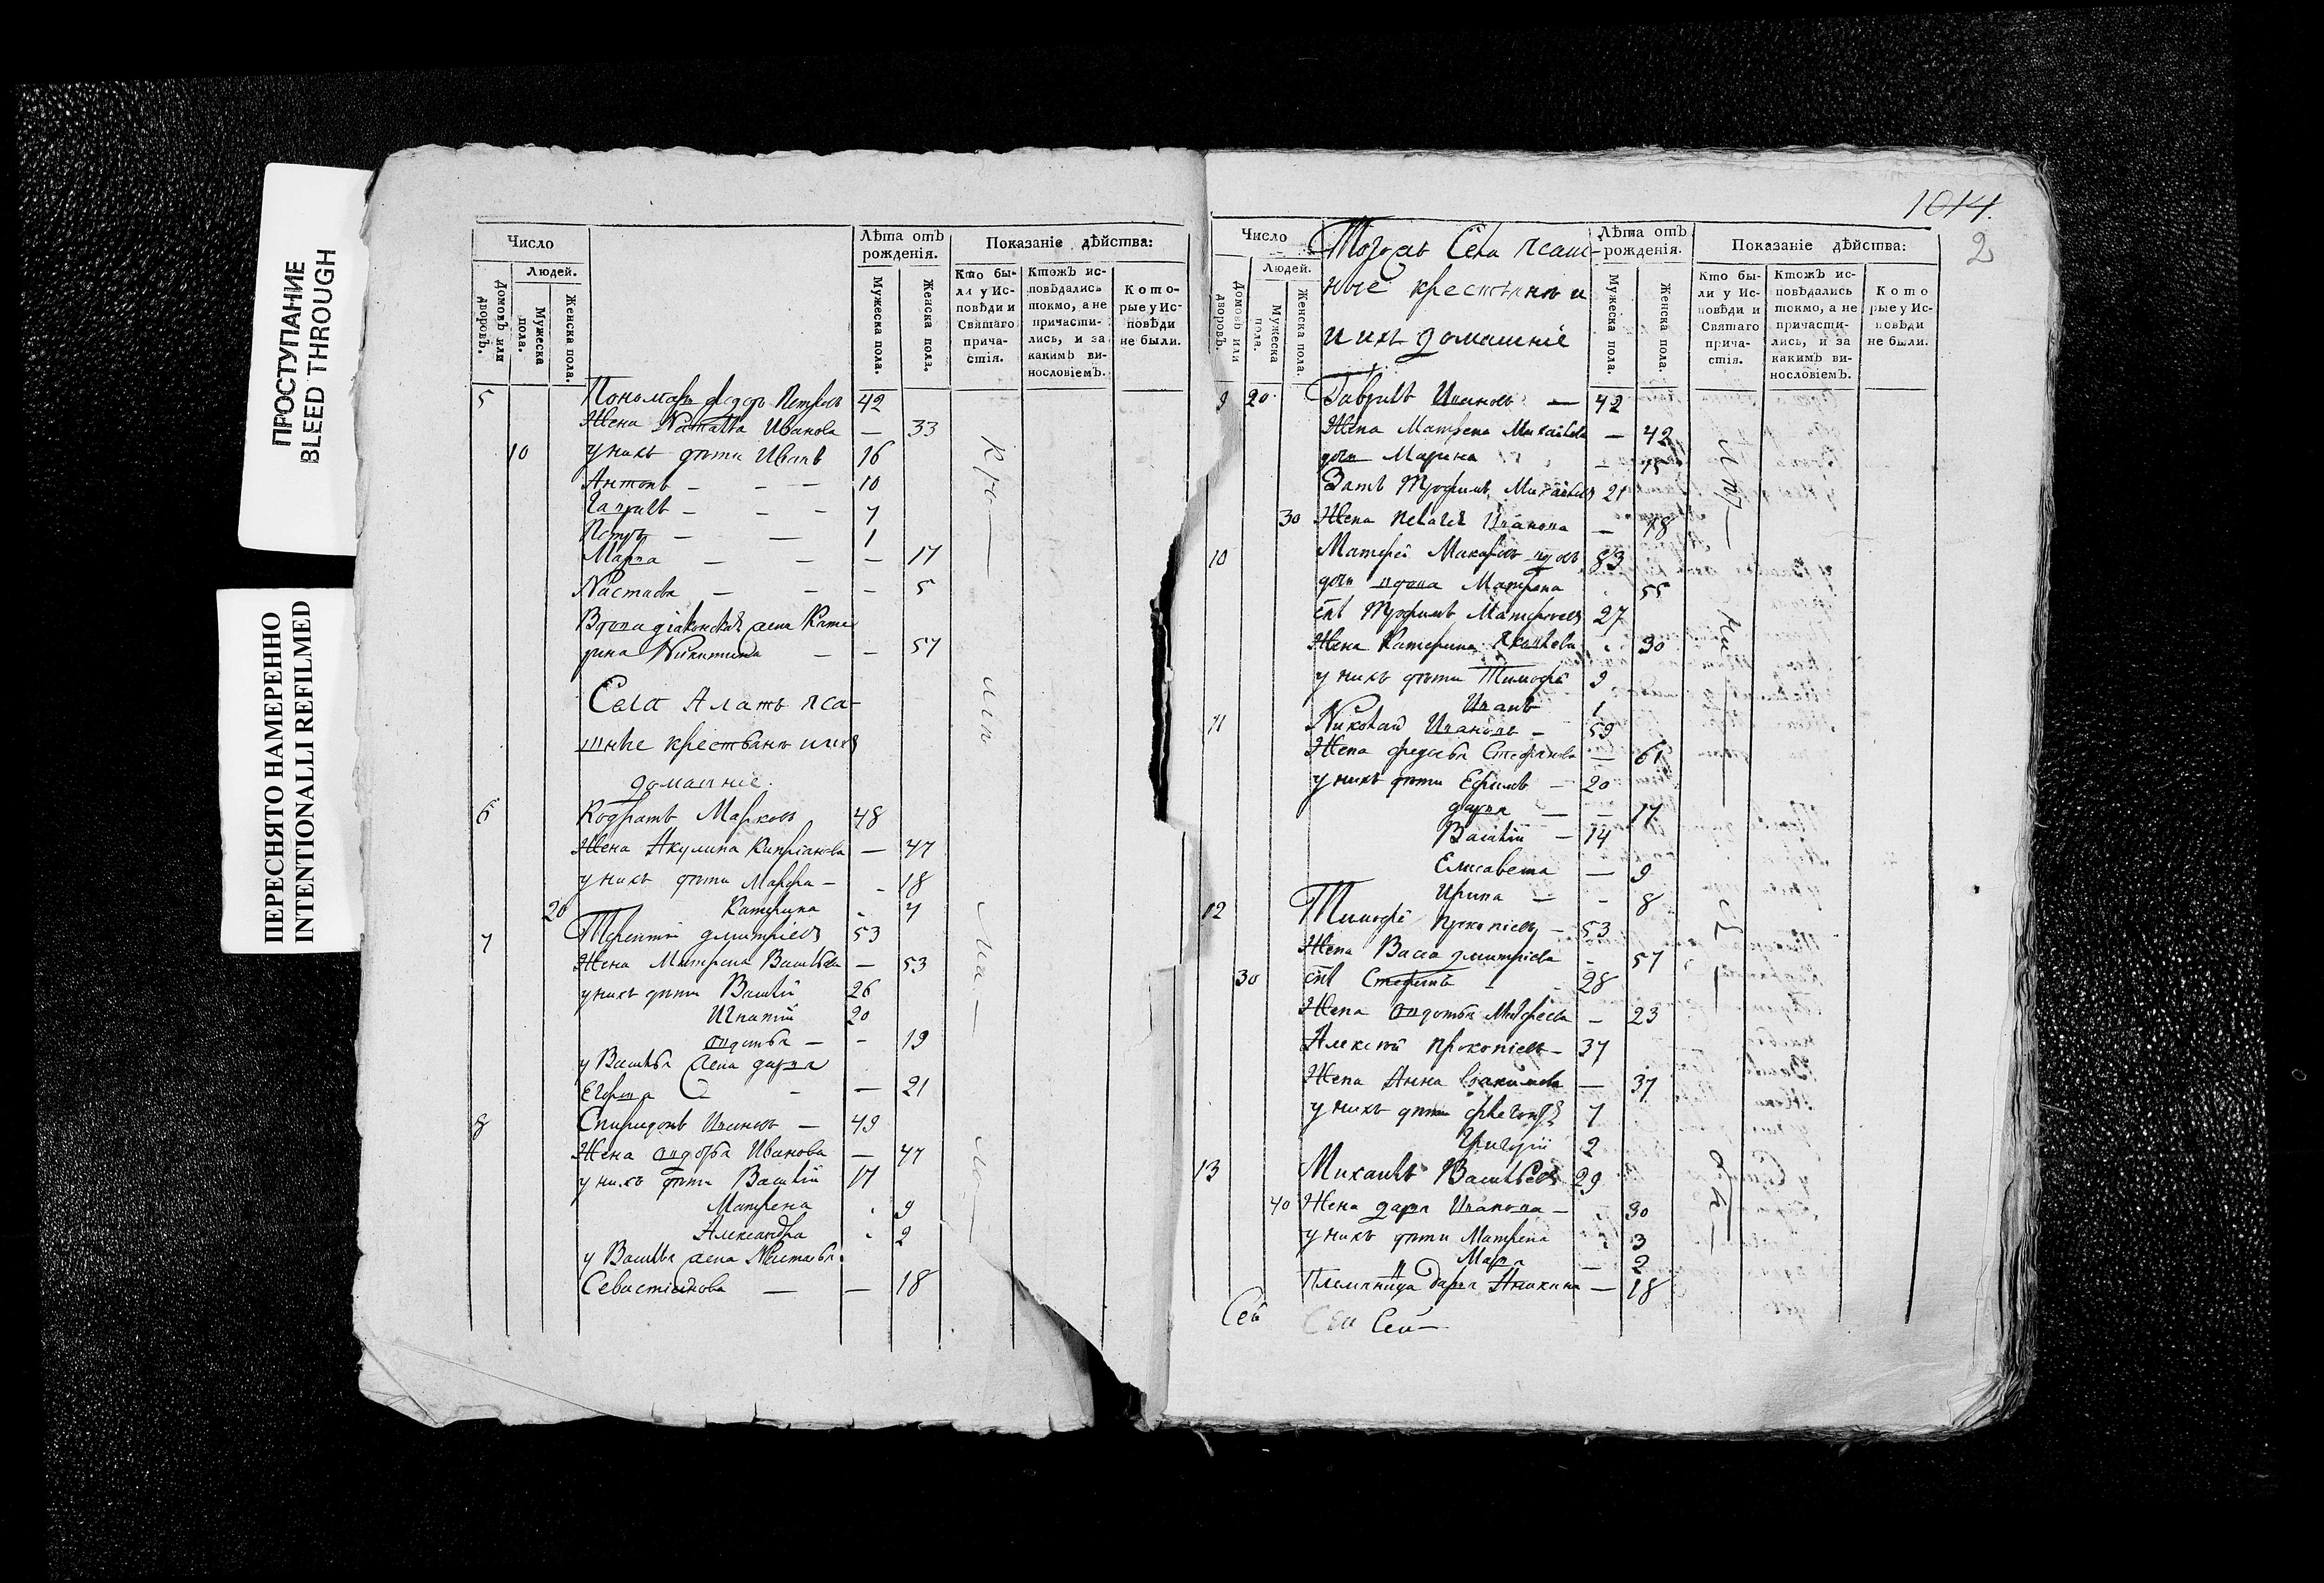 ПРОСТУПАНИЕ
BLEED THROUGH
ПЕРЕСНЯТО НАМЕРЕННО
INTENTIONALLI REFILMED
Число
Людей.
Домовъ или дворовъ.
Мужеска пола.
Женска пола.
Лѣта отъ рожденія.
Мужеска пола.
Женска пола.
Показаніе дѣйства:
Кто были у Исповѣди и Святаго причастія.
Ктожъ исповѣдались токмо, а не причастились, и за какимъ винословіемъ.
Которые у Исповѣди не были.
5 Пономарь Федоръ Петровъ 42
Жена Наталья Иванова — 33
10 у нихъ дѣти Иванъ 16
Антонъ — — — 10
Гаврилъ — — — 7
Петръ — — 1
Марѳа — — — 17
Настасья — — — 5
Вдова діаконская жена Кате
рина Никитина — — 57
Села Алатъ яса-
шные крестьянъ и ихъ
домашніе.
6 Кодратъ Марковъ 48
Жена Акулина Кипріанова — 47
у нихъ дѣти Марфа — - 18
20 Катерина - 7
7 Терентій Дмитріевъ 53
Жена Матрена Васильева — 53
у нихъ дѣти Василій 26
Игнатій 20
Авдотья — - 19
у Василья жена Дарья
Егорова — — 21
8 Спиридонъ Ивановъ — 49
Жена Авдотья Иванова — 47
у нихъ дѣти Василій 17
Матрена - 9
Александра - 2
у Василья жена Настасья
Севастіянова — — 18
1014.
2
Число
Людей.
Домовъ или дворовъ.
Мужеска пола.
Женска пола.
Тогожъ Села ясаш-
ные крестьянъ и
и ихъ домашніе
Лѣта отъ рожденія.
Мужеска пола.
Женска пола.
Показаніе дѣйства:
Кто были у Исповѣди и Святаго причастія.
Ктожъ исповѣдались токмо, а не причастились, и за какимъ винословіемъ.
Которые у Исповѣди не были.
9 20 Гаврилъ Ивановъ — 42
Жена Матрена Михайлова — 42
дочь Марина — 15
Зять Трофимъ Михайловъ 21
30 Жена Пелагея Иванова — 18
10 Матфей Макаровъ вдовъ 83
дочь вдова Матрена - 55
сынъ Трофимъ Матфеевъ 27
Жена Катерина Яковлева - 30
у нихъ дѣти Тимофей 9
Иванъ 1
11 Николай Ивановъ — 59
Жена Федосья Стефанова — 61
у нихъ дѣти Ефимъ — 20
Дарья — — 17
Василій — 14
Елисавета — 9
Ирина — - 8
12 Тимофей Прокопіевъ — 53
Жена Васса Дмитріева - 57
30 сынъ Стефанъ 28
Жена Авдотья Матфеева — 23
Алексѣй Прокопіевъ — 37
Жена Анна — 37
у нихъ дѣти 7
Григорій 2
13 Михаилъ Васильевъ 29
40 Жена Дарья Иванова — 30
у нихъ дѣти Матрена - 3
Марья — 2
Племянница Дарья Аникина — 18